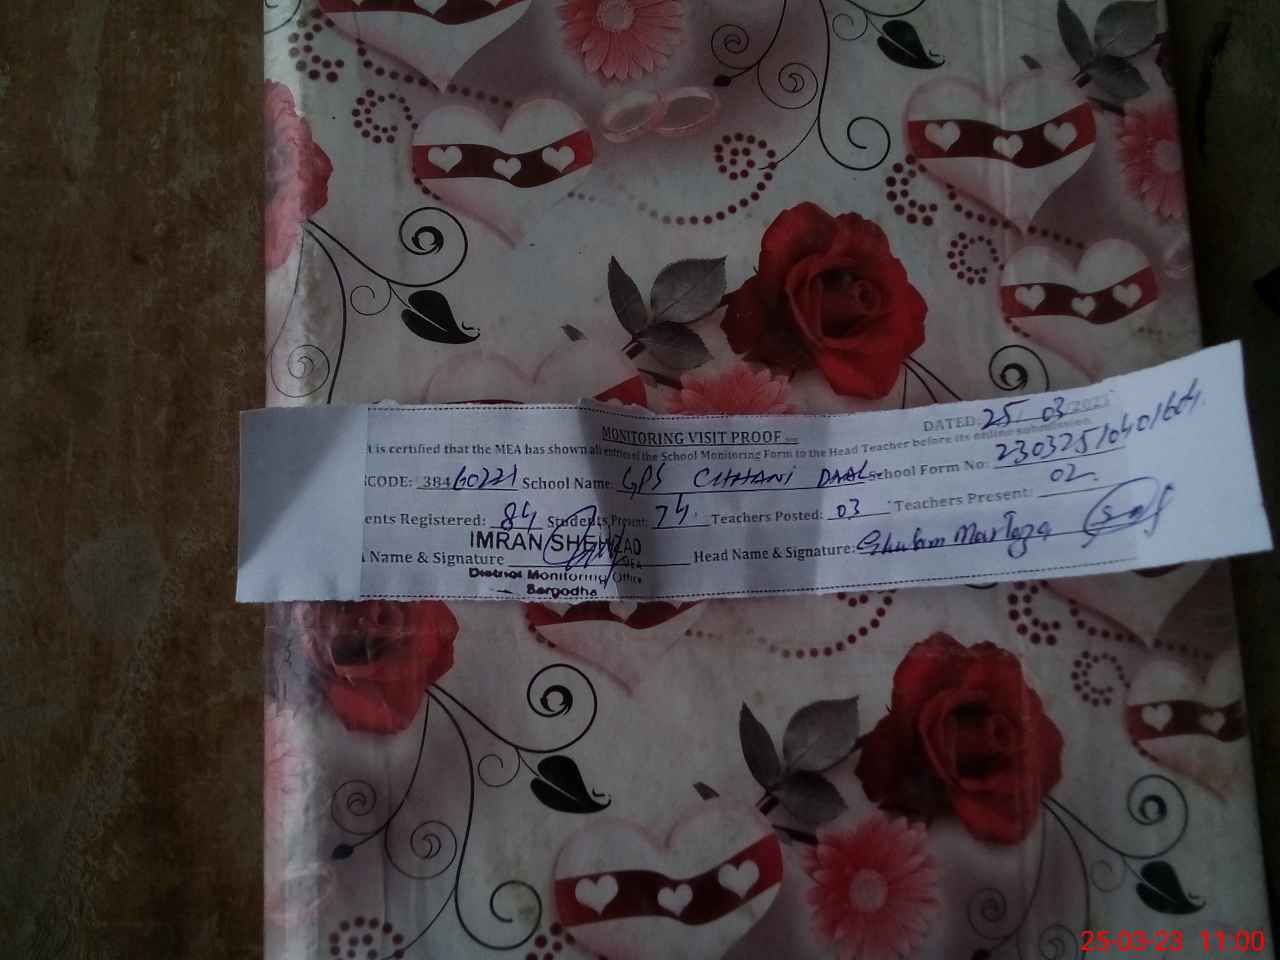 MONITORING VISIT PROOF
DATED: 25/03/2023
t is certified that the MEA has shown all entries of the School Monitoring Form to the Head Teacher before its online submission.
CODE: 38460221 School Name: GPS CHHANI DAAL School Form No: 23032510401604
ents Registered: 84 Students Present: 74 Teachers Posted: 03 Teachers Present: 02
Name & Signature IMRAN SHEHZAD MEA Head Name & Signature: Ghulam Murtaza
District Monitoring Office
Sargodha
25-03-23 11:00